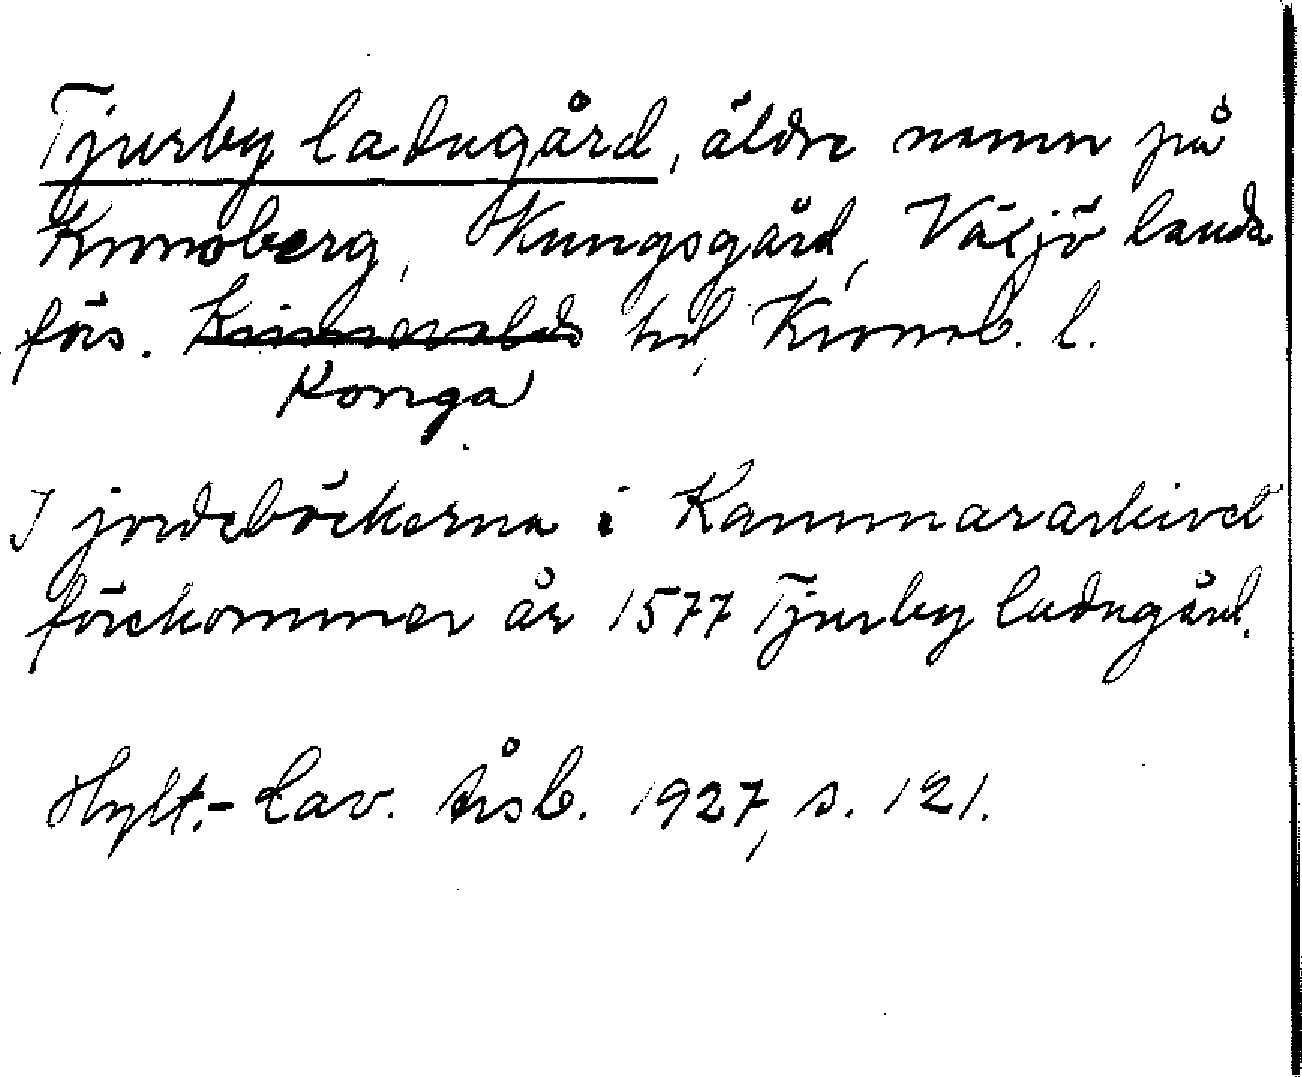 Tjurby ladugård, äldre namn på
Kronoberg, Kungsgård, Växjö lands
förs. Kinnevalds hd, Kronob. l.
Konga
I jordeböckerna i Kammararkivet
förekommer år 1577 Tjurby ladugård.
Hylt.-Cav. Årsb. 1927, s. 121.